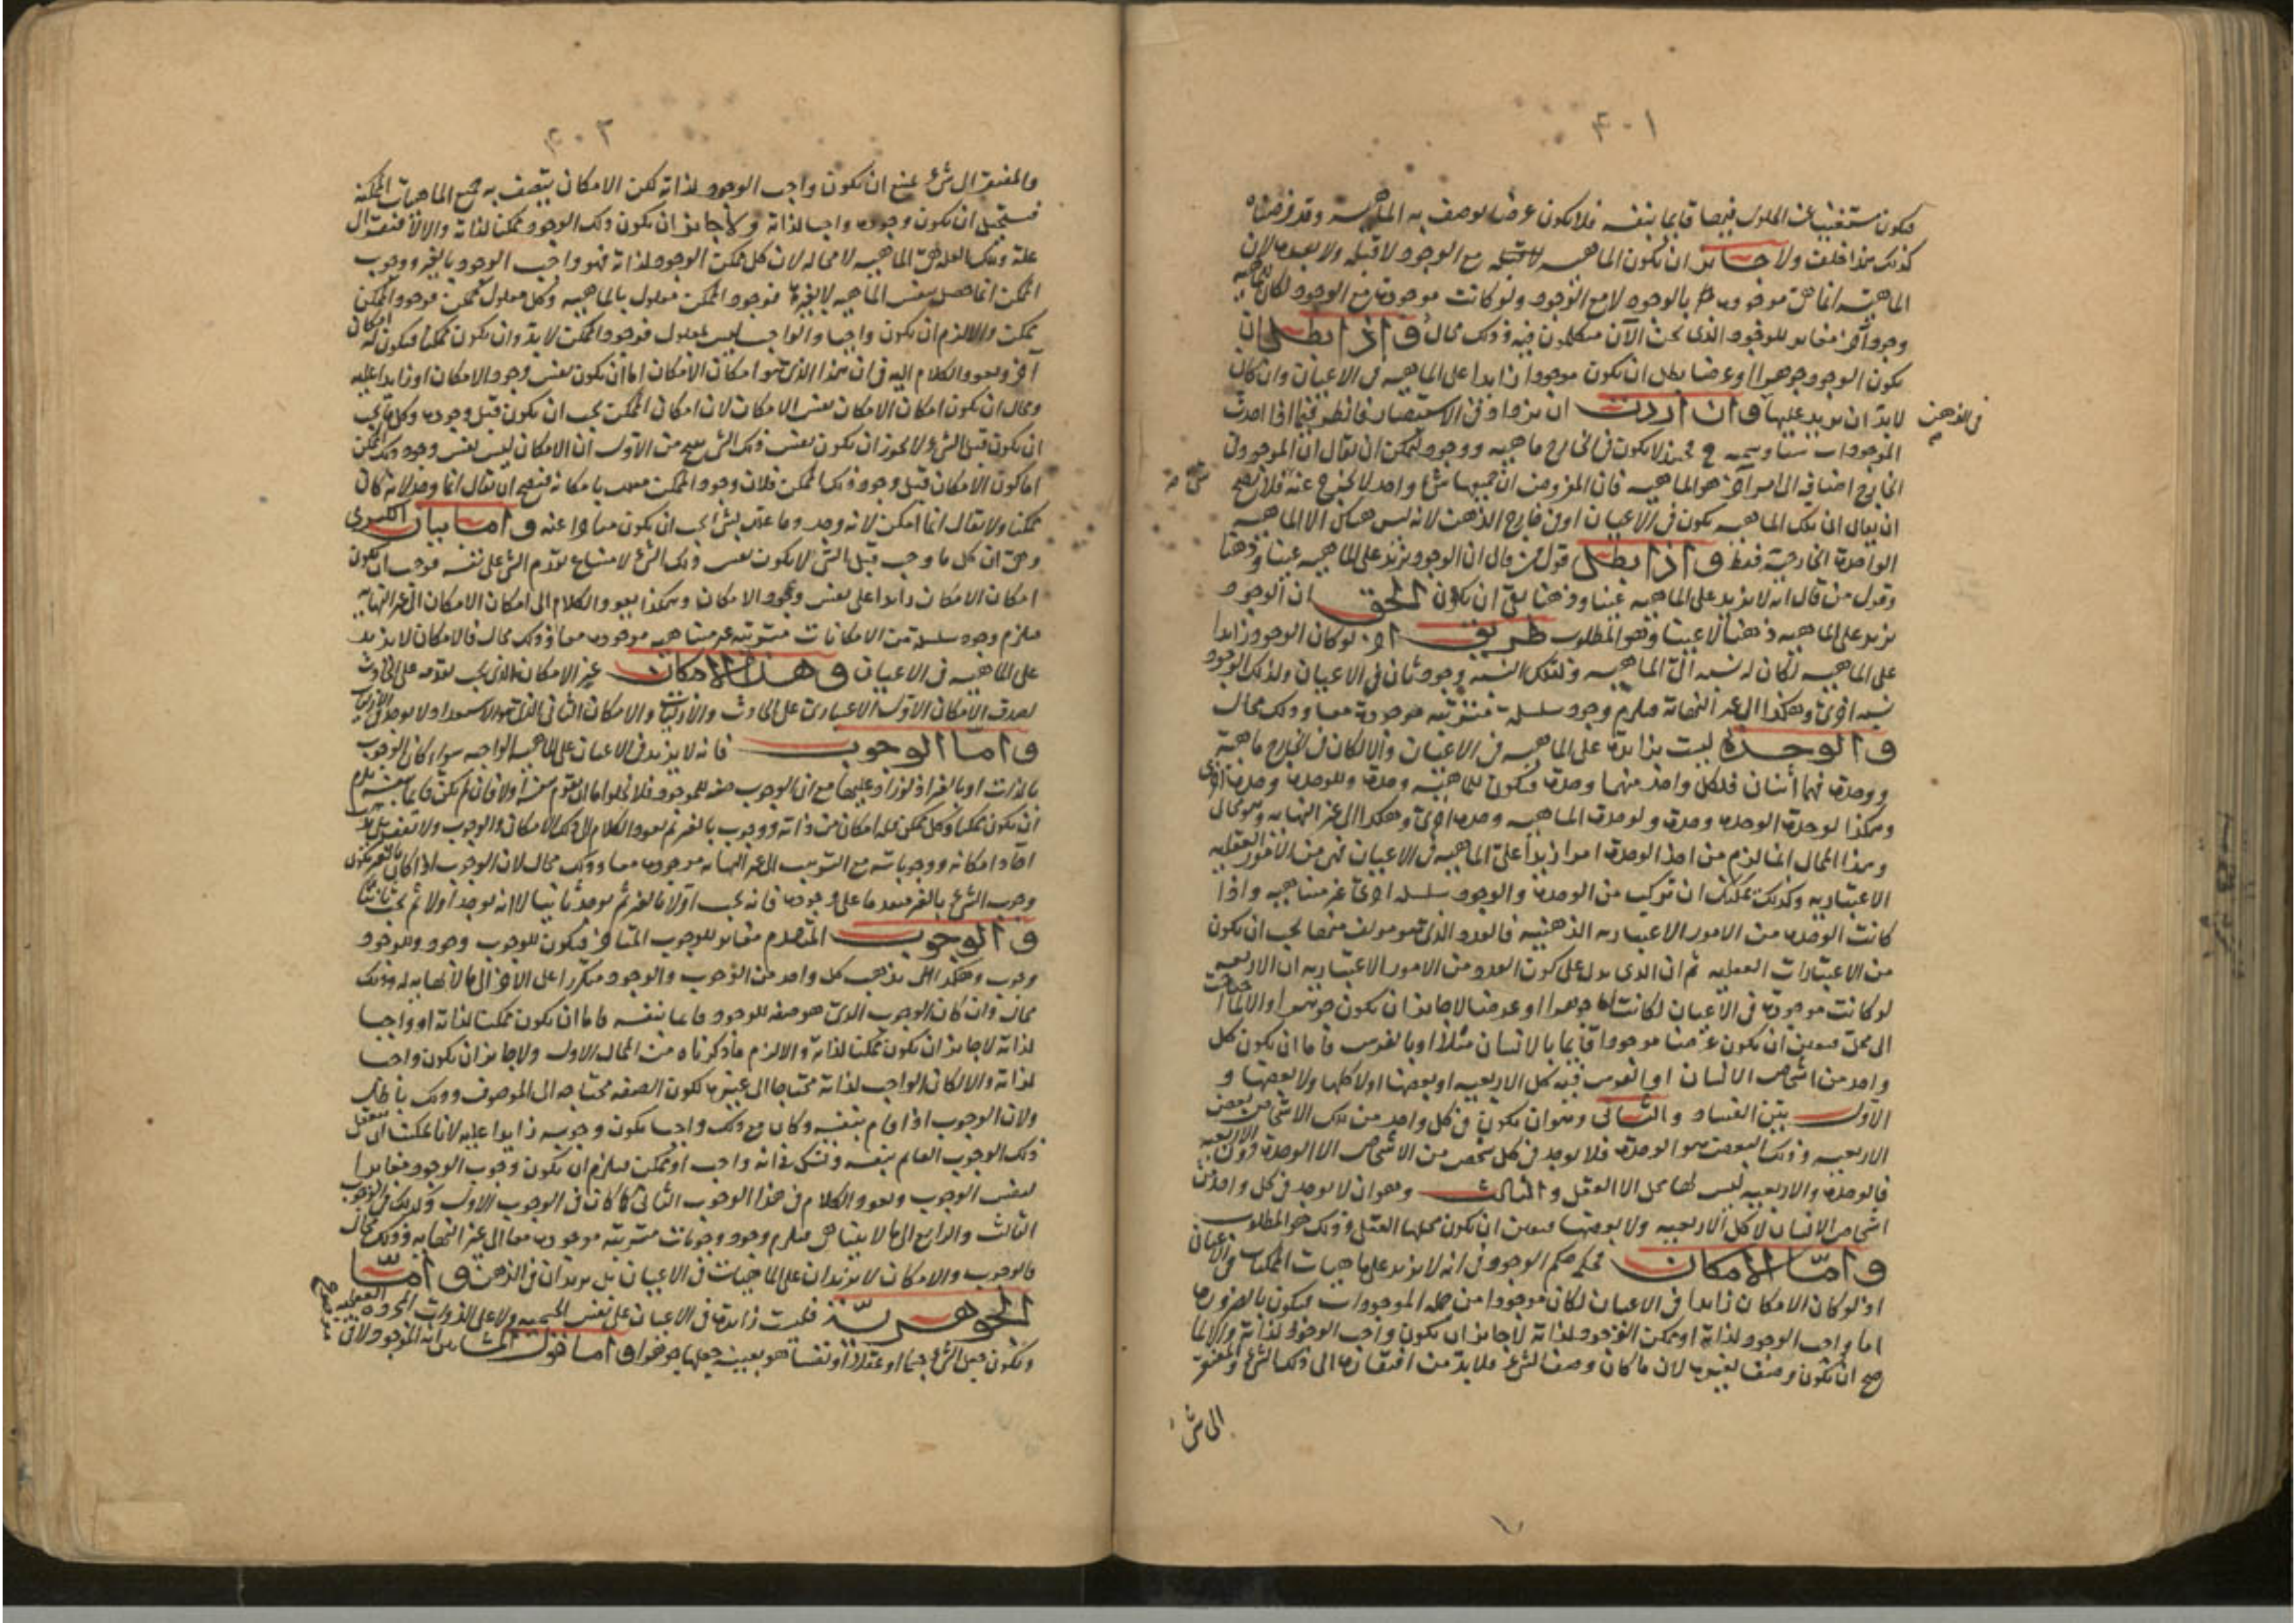 ٤٠١
فيكون مستغنيا عن الحلول فيها قايما بنفسه فلا يكون عرضا يوصف به الماهية وقد فرضناه
كذلك هذا خلف ولا جايز ان يكون الماهية مع الوجود لا قبله ولا بعده لان
الماهية انما هى موجودة بالوجود لا مع الوجود ولو كانت موجودة مع الوجود لكان للماهية
وجود آخر مغاير للوجود الذى نحن الآن متكلمون فيه وذلك محال واذا بطل ان
يكون الوجود جوهرا او عرضا بطل ان يكون موجودا زايدا على الماهية فى الاعيان وان كان
لابد ان يزيد عليها وان اردت ان تزداد فى الاستبصار فانظر فيما اذا اخذت
فى الذهن
الموجودات شيئا وسميه ج فحينئذ لا يكون فى الخارج ماهية ووجود ليمكن ان يقال ان الموجود فى
الخارج اضاف الى امر آخر هو الماهية فان المفروض ان جميعها شىء واحد لا يخرج عنه فلا يصح
ان يقال ان تلك الماهية يكون فى الاعيان او فى خارج الذهن لانه ليس هناك الا الماهية
الواحدة الخارجية فقط واذا بطل قول من قال ان الوجود يزيد على الماهية عينا وذهنا
وقول من قال انه لا يزيد على الماهية عينا وذهنا بقى ان يكون الحق ان الوجود
يزيد على الماهية ذهنا لا عينا وهو المطلوب طريق آخر لو كان الوجود زايدا
على الماهية لكان له نسبة الى الماهية ولتلك النسبة وجود ثان فى الاعيان ولذلك الوجود
نسبة اخرى وهكذا الى غير النهاية فيلزم وجود سلسلة مترتبة موجودة معا وذلك محال
والوحدة ليست بزايدة على الماهية فى الاعيان والا لكان فى الخارج ماهية
ووحدة فهما اثنان فلكل واحد منهما وحدة فيكون للماهية وحدة وللوحدة وحدة اخرى
وهكذا لوحدة الوحدة وحدة ولوحدة الماهية وحدة اخرى وهكذا الى غير النهاية وهو محال
وهذا المحال انما لزم من اخذ الوحدة امرا زايدا على الماهية فى الاعيان فهى من الامور العقلية
الاعتبارية وكذلك يمكنك ان تركب من الوحدة والوجود سلسلة اخرى غير متناهية واذا
كانت الوحدة من الامور الاعتبارية الذهنية فالعدد الذى هو مؤلف منها يجب ان يكون
من الاعتبارات العقلية ثم ان الذى يدل على كون العدد من الامور الاعتبارية ان الاربعة
لو كانت موجودة فى الاعيان لكانت اما جوهرا او عرضا لا جايز ان يكون جوهرا والا لما احتاجت
الى محل فتعين ان يكون عرضا موجودا قايما بالانسان مثلا او بالفرس فاما ان يكون كل
واحد من اشخاص الانسان او الفرس فيه كل الاربعية او بعضها او لا كلها ولا بعضها و
الاول بيّن الفساد والثانى وهو ان يكون فى كل واحد من تلك الاشخاص بعض
الاربعية وذلك البعض هو الوحدة فلا يوجد فى كل شخص من الاشخاص الا الوحدة دون الاربعية
فالوحدة والاربعية ليس لهما محل الا العقل والثالث وهو ان لا يوجد فى كل واحد من
اشخاص الانسان لا كل الاربعية ولا بعضها فتعين ان يكون محلها العقل وذلك هو المطلوب
واما الامكان فحكمه حكم الوجود فى انه لا يزيد على ماهيات الممكنات فى الاعيان
اذ لو كان الامكان زايدا فى الاعيان لكان موجودا من جملة الموجودات فيكون بالضرورة
اما واجب الوجود لذاته او ممكن الوجود لذاته لا جايز ان يكون واجب الوجود لذاته والا لما
صح ان يكون وصفا لغيره لان ما كان وصفا لشىء فلابد من افتقاره الى ذلك الشىء والمفتقر
الى شىء
٤٠٢
والمفتقر الى شىء يمتنع ان يكون واجب الوجود لذاته لكن الامكان يتصف به جميع الماهيات الممكنة
فيستحيل ان يكون وجوده واجبا لذاته ولا جايز ان يكون ذلك الوجود ممكنا لذاته والا لافتقر الى
علة وتلك العلة هى الماهية لا محالة لان كل ممكن الوجود لذاته فهو واجب الوجود بالغير ووجوب
الممكن انما حصل بنفس الماهية لا بغيره فوجود الممكن معلول بالماهية وكل معلول ممكن فوجود الممكن
ممكن والا لزم ان يكون واجبا والواجب ليس بمعلول فوجود الممكن لابد وان يكون ممكنا فيكون له امكان
آخر ويعود الكلام اليه فى ان هذا الذى هو امكان الامكان اما ان يكون نفس وجود الامكان او زايدا عليه
ومحال ان يكون امكان الامكان نفس الامكان لان امكان الممكن يجب ان يكون قبل وجوده وكل ما يجب
ان يكون قبل الشىء لا يجوز ان يكون نفس ذلك الشىء ينتج من الاول ان الامكان ليس نفس وجود ذلك الممكن
اما كون الامكان قبل وجود ذلك الممكن فلان وجود الممكن معلل بامكانه فيصح ان يقال انما وجد لانه كان
ممكنا ولا يقال انما امكن لانه وجد وما علل بشىء يجب ان يكون متاخرا عنه واما بيان الكبرى
وهى ان كل ما وجب قبل الشىء لا يكون نفس ذلك الشىء لامتناع تقدم الشىء على نفسه فوجب ان يكون
امكان الامكان زايدا على نفس وجود الامكان وهكذا يعود الكلام الى امكان الامكان الى غير النهاية
فيلزم وجود سلسلة من الامكانات مترتبة غير متناهية موجودة معا وذلك محال فالامكان لا يزيد
على الماهية فى الاعيان وهذا الامكان غير الامكان الذى يجب تقدمه على الحادث
لصدق الامكان الاول الاعتبارى على الحادث والازليات والامكان الثانى الذى هو الاستعداد لا يوجد فى الازليات
واما الوجوب فانه لا يزيد فى الاعيان على الماهية الواجبة سواء كان الوجوب
بالذات او بالغير اذ لو زاد عليها مع ان الوجوب صفة للموجود فلا يخلو اما ان يقوم بنفسه او لا فان لم يكن قايما بنفسه يلزم
ان يكون ممكنا وكل ممكن فله امكان من ذاته ووجوب بالغير ثم يعود الكلام الى ذلك الامكان والوجوب
آحاد امكاناته ووجوباته مع الترتيب الى غير النهاية موجودة معا وذلك محال لان الوجوب اذا كان بالغير يكون
وجوب الشىء بالغير متقدما على وجوده فانه يجب اولا بالغير ثم يوجد ثانيا لا انه يوجد اولا ثم يجب ثانيا
والوجوب المتقدم مغاير للوجوب المتاخر فيكون للوجوب وجود وللوجود
وجوب وهكذا يذهب كل واحد من الوجوب والوجود متكررا على الآخر الى ما لا نهاية له وذلك
محال وان كان الوجوب الذى هو صفة للوجود قايما بنفسه فاما ان يكون ممكنا لذاته او واجبا
لذاته لا جايز ان يكون ممكنا لذاته والا لزم ما ذكرناه من المحال الاول ولا جايز ان يكون واجبا
لذاته والا لكان الواجب لذاته محتاجا الى غيره لكون الصفة محتاجة الى الموصوف وذلك باطل
ولان الوجوب اذا قام بنفسه وكان مع ذلك واجبا يكون وجوبه زايدا عليه لانا يمكننا ان نعقل
ذلك الوجوب القايم بنفسه ونشك فى انه واجب او ممكن فيلزم ان يكون وجوب الوجود مغايرا
لنفس الوجوب ويعود الكلام فى هذا الوجوب الثانى كما كان فى الوجوب الاول وكذلك فى الوجوب
الثالث والرابع الى ما لا يتناهى فيلزم وجود وجوبات مترتبة موجودة معا الى غير النهاية وذلك محال
فالوجوب والامكان لا يزيدان على الماهيات فى الاعيان بل يزيدان فى الذهن واما
الجوهرية فليست زايدة فى الاعيان على نفس الجسمية ولا على الذوات المجردة العقلية
ويكون جعل الشىء جسما او عقلا او نفسا هو بعينه جعلها جوهرا واما قول المشائين انه الموجود لا فى